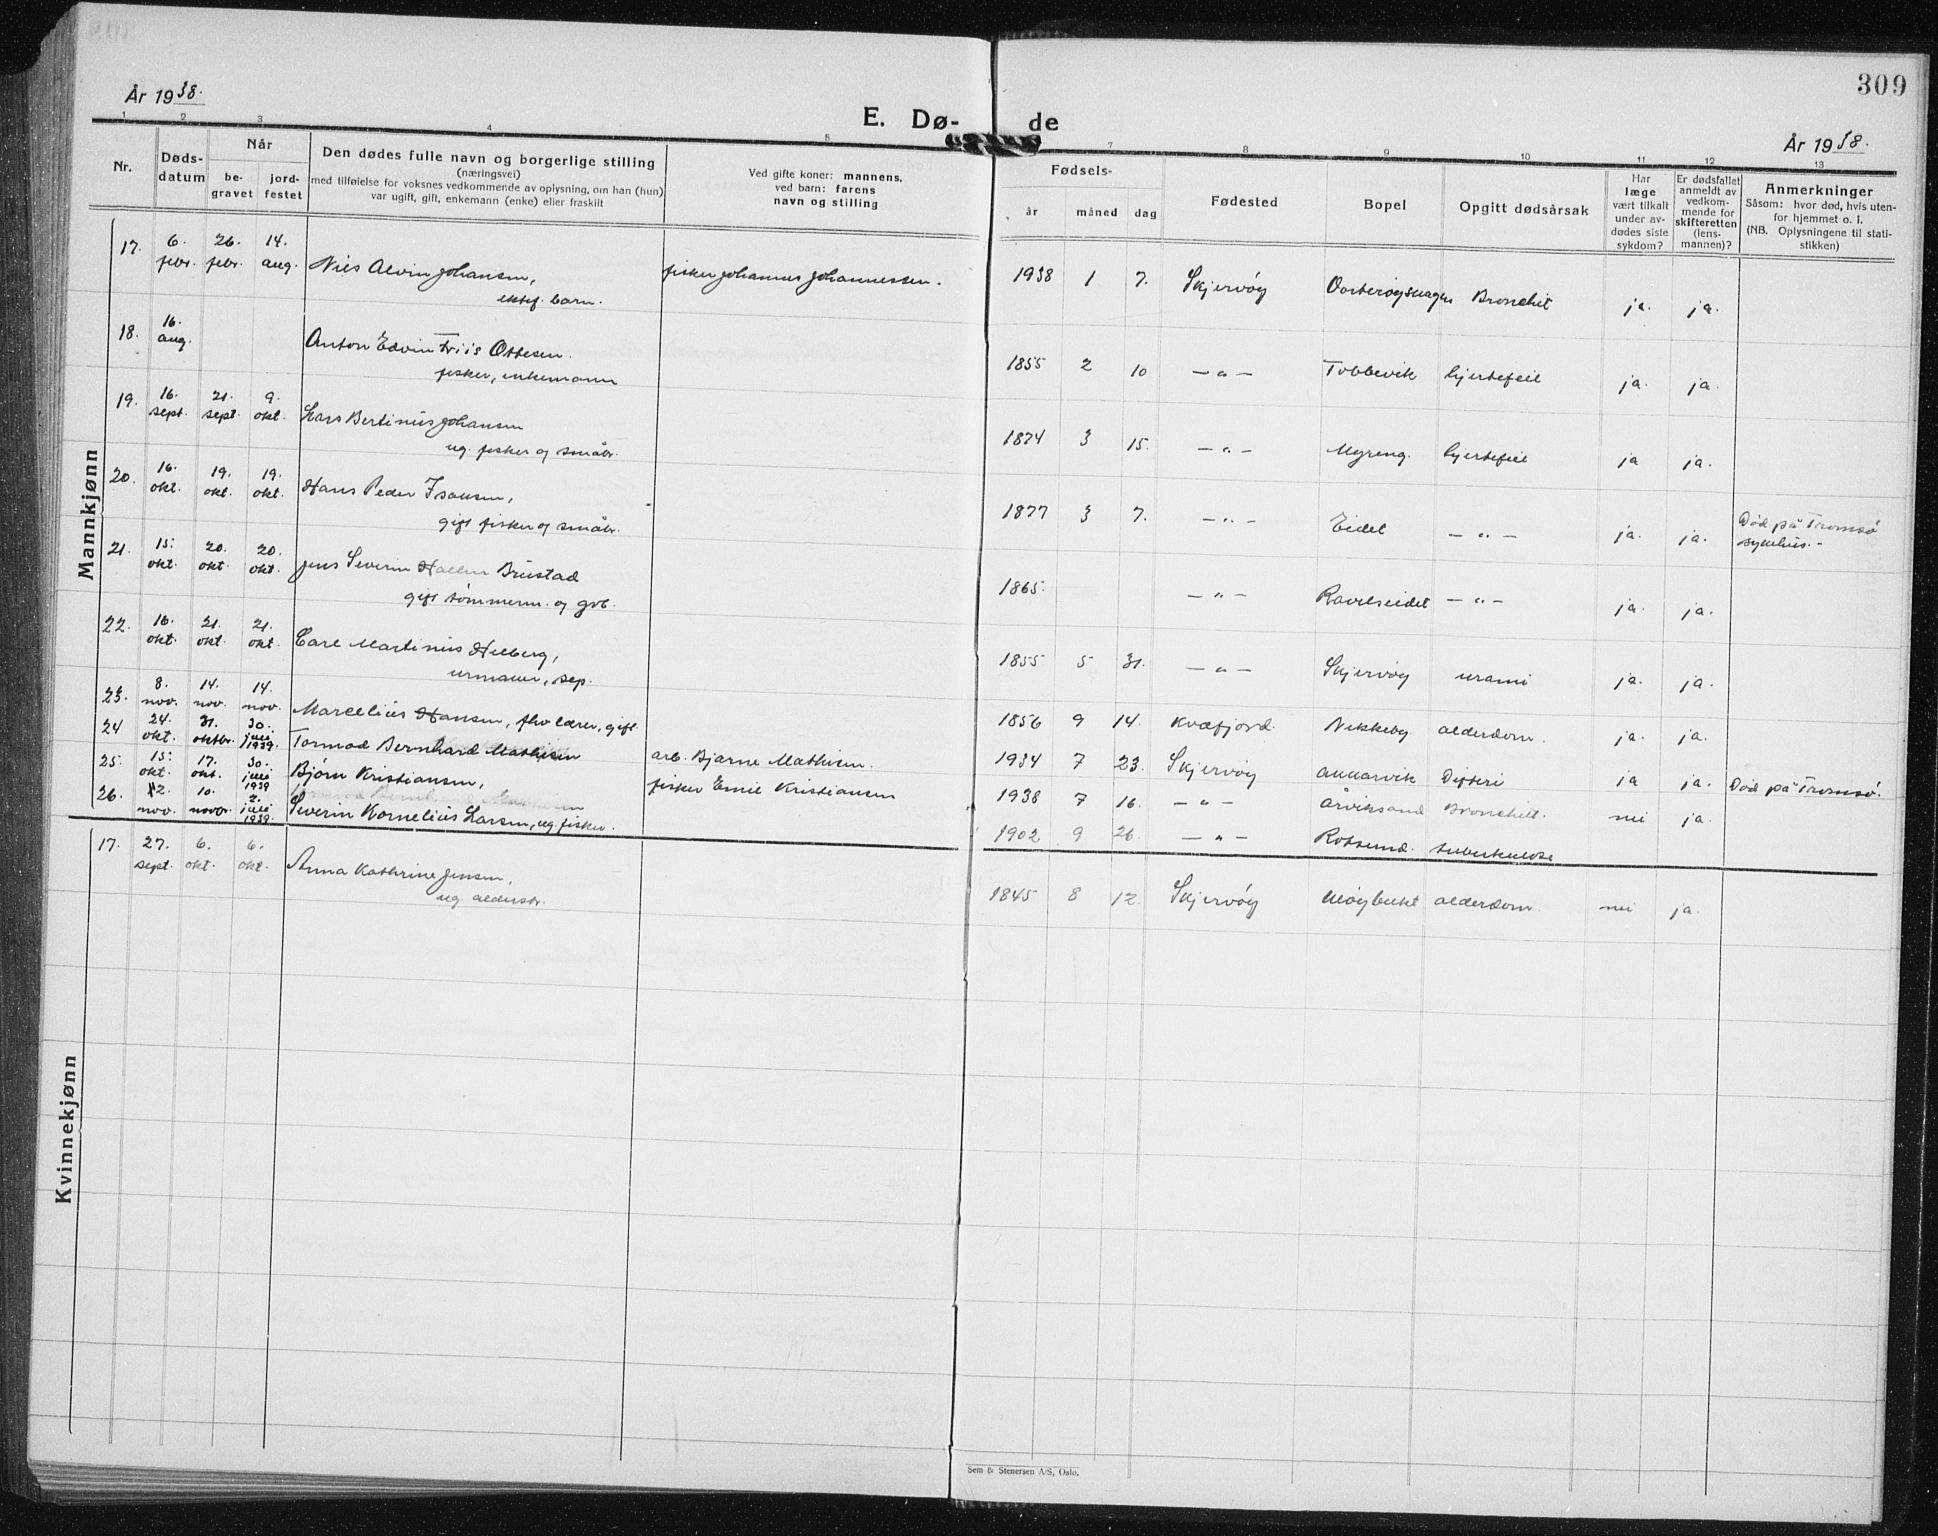 309
År 1938.
E. Dø- de
År 1938.
1 2 3 4 5 7 8 9 10 11 12 13
Nr.
Døds-
datum
Når
be-
gravet
jord-
festet
Den dødes fulle navn og borgerlige stilling
(næringsvei)
med tilføielse for voksnes vedkommende av oplysning, om han (hun)
var ugift, gift, enkemann (enke) eller fraskilt
Ved gifte koner: mannens,
ved barn: farens
navn og stilling
Fødsels-
år måned dag
Fødested
Bopel
Opgitt dødsårsak
Har
læge
vært tilkalt
under av-
dødes siste
sykdom?
Er dødsfallet
anmeldt av
vedkom-
mende for
skifteretten
(lens-
mannen)?
Anmerkninger
Såsom: hvor død, hvis uten-
for hjemmet o. l.
(NB. Oplysningene til stati-
stikken)
Mannkjønn
17. 6. febr. 26. febr. 14. aug. Nils Alvin Johansen, fisker Johannes Johannessen. 1938 1 7. Skjervøy Bronchit ja. ja.
ektef. barn.
18. 16. aug. Anton Edvin Friis Ottesen. 1855 2 10 — " — Tobbevik hjertefeil ja. ja.
fisker, enkemann
19. 16. sept. 21. sept. 9. okt. Lars Bertinius Johansen 1874 3 15. — " — Myreng. hjertefeil ja ja.
ug. fisker og småbr.
20. 16. okt. 19. okt. 19. okt. Hans Peder Isaksen, 1877 3 7. — " — Eidet — " — ja. ja. Død på Tromsø
gift fisker og småbr. sykehus. -
21. 15. okt. 20. okt. 20. okt. Jens Severin Hallen Brustad 1865. — " — Ravelseidet — " — ja. ja.
gift tømmerm. og gbr.
22. 16. okt. 21. okt. 21. okt. Carl Martinius Hilberg, 1855 5 31. — " — Skjervøy urami ja. ja.
urmaker, sep.
23. 8. nov. 14. nov. 14. nov. Marcelius Hansen, fhv lærer, gift 1856 9 14. Kvæfjord. Nikkeby alderdom. ja. ja.
24 24. okt. 31. oktbr. 30. juli 1939. Tormod Bernhard Mathisen arb. Bjarne Mathisen. 1934 7 23. Skjervøy Difteri ja ja. Død på Tromsø.
25. 15. okt. 17. okt. 30. juli 1939 Bjørn Kristiansen, fisker Emil Kristiansen 1938 7 16. — " — Årviksand Bronchitt. nei ja.
26. 2. nov. 10. novbr. 2. juli 1939. Severin Kornelius Larsen, ug. fisker. 1902 9 26. — " — Rotsund. tuberkulose
Kvinnekjønn
17. 27. sept. 6. okt. 6. okt. Anna Kathrine Jensen, 1845 8 12. Skjervøy alderdom. nei ja.
ug alderstr.
Sem & Stenersen A/S, Oslo.